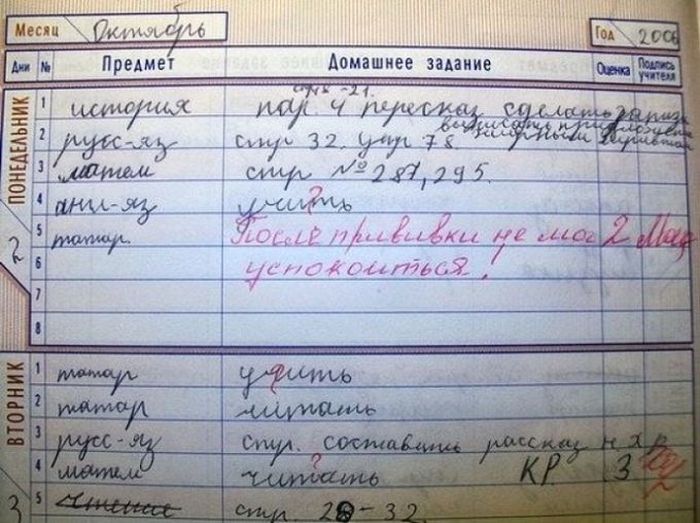 Месяц Октябрь Год 2006
Дни № Предмет Домашнее задание Оценка Подпись учителя
ПОНЕДЕЛЬНИК 2
стр 18-21.
1 история пар. 4 пересказ сделать
2 русс-яз стр 32. упр 78 выписать
3 матем стр № 287, 295.
4 анг-яз учить ?
5 татар. После прививки не мог 2
6 успокоиться!
7
8
ВТОРНИК 3
1 татар учить
2 татар читать
3 русс-яз стр. составить рассказ
4 матем читать ? КР 3
5 чтение стр. 28-32.